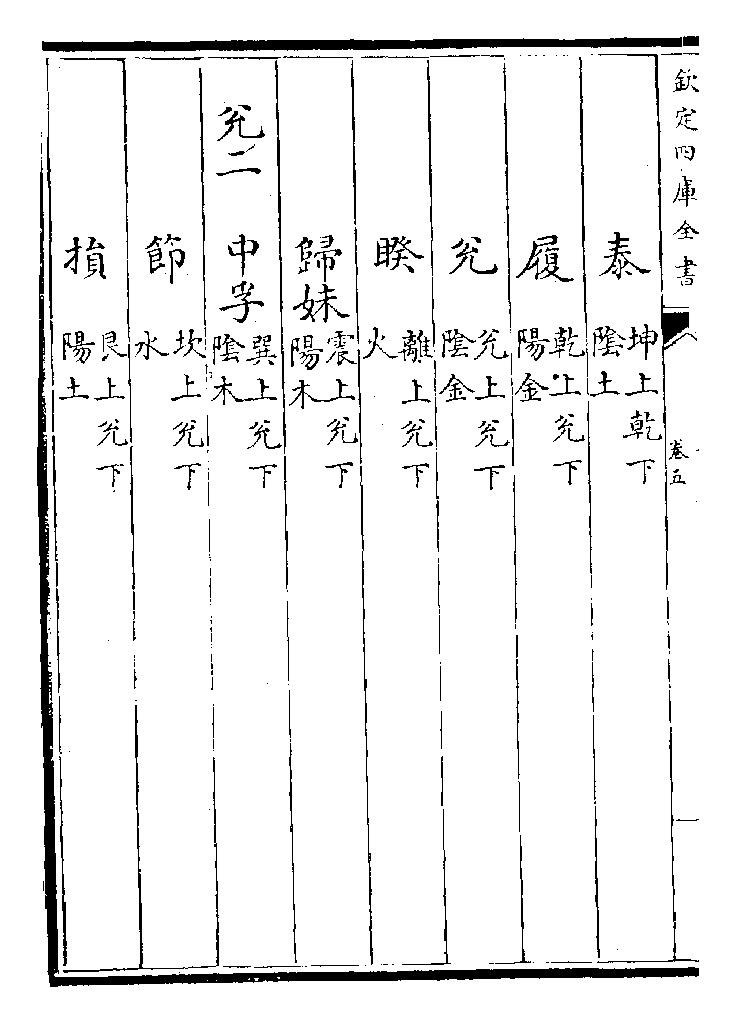 欽定四庫全書
卷五
泰
坤上乾下
陰土
履
乾上兊下
陽金
兊
兊上兊下
陰金
睽
離上兊下
火
歸妹
震上兊下
陽木
兊二
中孚
巽上兊下
陰木
節
坎上兊下
水
損
艮上兊下
陽土